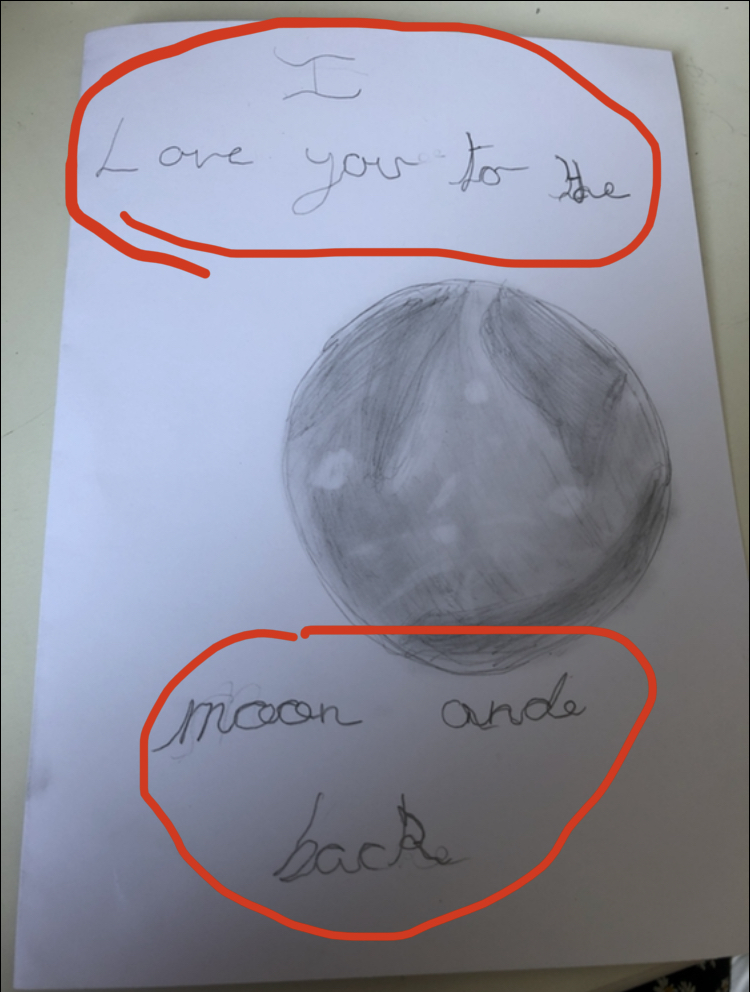 I
Love you to the
moon ande
back